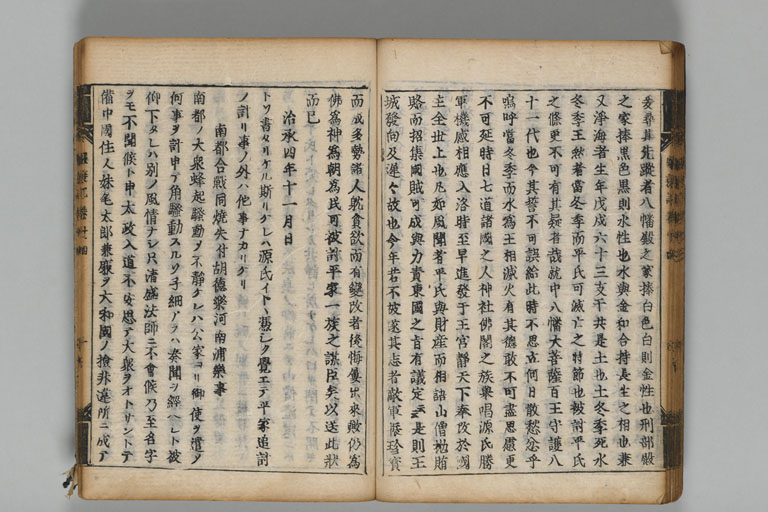 爰尋其先蹤者八幡殿之家捧白色白則金性也刑部殿
之家捧黒色黒則水性也水與金和合持長生之相也兼
又淨海者生年戊戌六十三支干共是土也土冬季死水
冬季王然者當冬季而平氏可滅亡之時節也被討平氏
之條更不可有其疑者哉就中八幡大菩薩百王守護八
十一代也今其誓不可誤給此時不思立何日散愁忿乎
嗚呼當冬季而水寫王相滅火有其機敢不可盡思慮更
不可延時日七道諸國之人神社佛閣之族與唱源氏勝
軍機感相應入洛時至早進發于王宮靜天下奉改於國
主全世上也凡如風聞者平氏與財産而相語山僧施賄
賂而招集國賊可成與力責東國之旨有議定云云是則王
城發向及遲々故也今年若不被遂其志者敵軍懸珍寶
而成多勢諸人耽貪欲而有變改者後悔屢出來歟仍為
佛為神為朝為民可被討平家一族之謀臣矣以送此狀
而已
治承四年十一月日
トソ書タリケル斯リケレハ源氏イトヽ憑シク覺エテ平家追討
ノ計リ事ノ外ハ他事ナカリケリ
南都合戰同燒失付胡德樂河南浦樂事
南都ノ大衆蜂起騷動ヲ不靜ケレハ公家ヨリ御使ヲ遣ノ
何事ヲ計申テ角騷動スルソ子細アラハ奏聞ヲ經ヘシト被
仰下タレハ別ノ風情ナシ只清盛法師ニ不會候乃至名字
ヲモ不聞候ト申太政入道不安思テ大衆ヲオトサントテ
備中國住人妹尾太郎兼康ヲ大和國ノ檢非違所ニ成テ